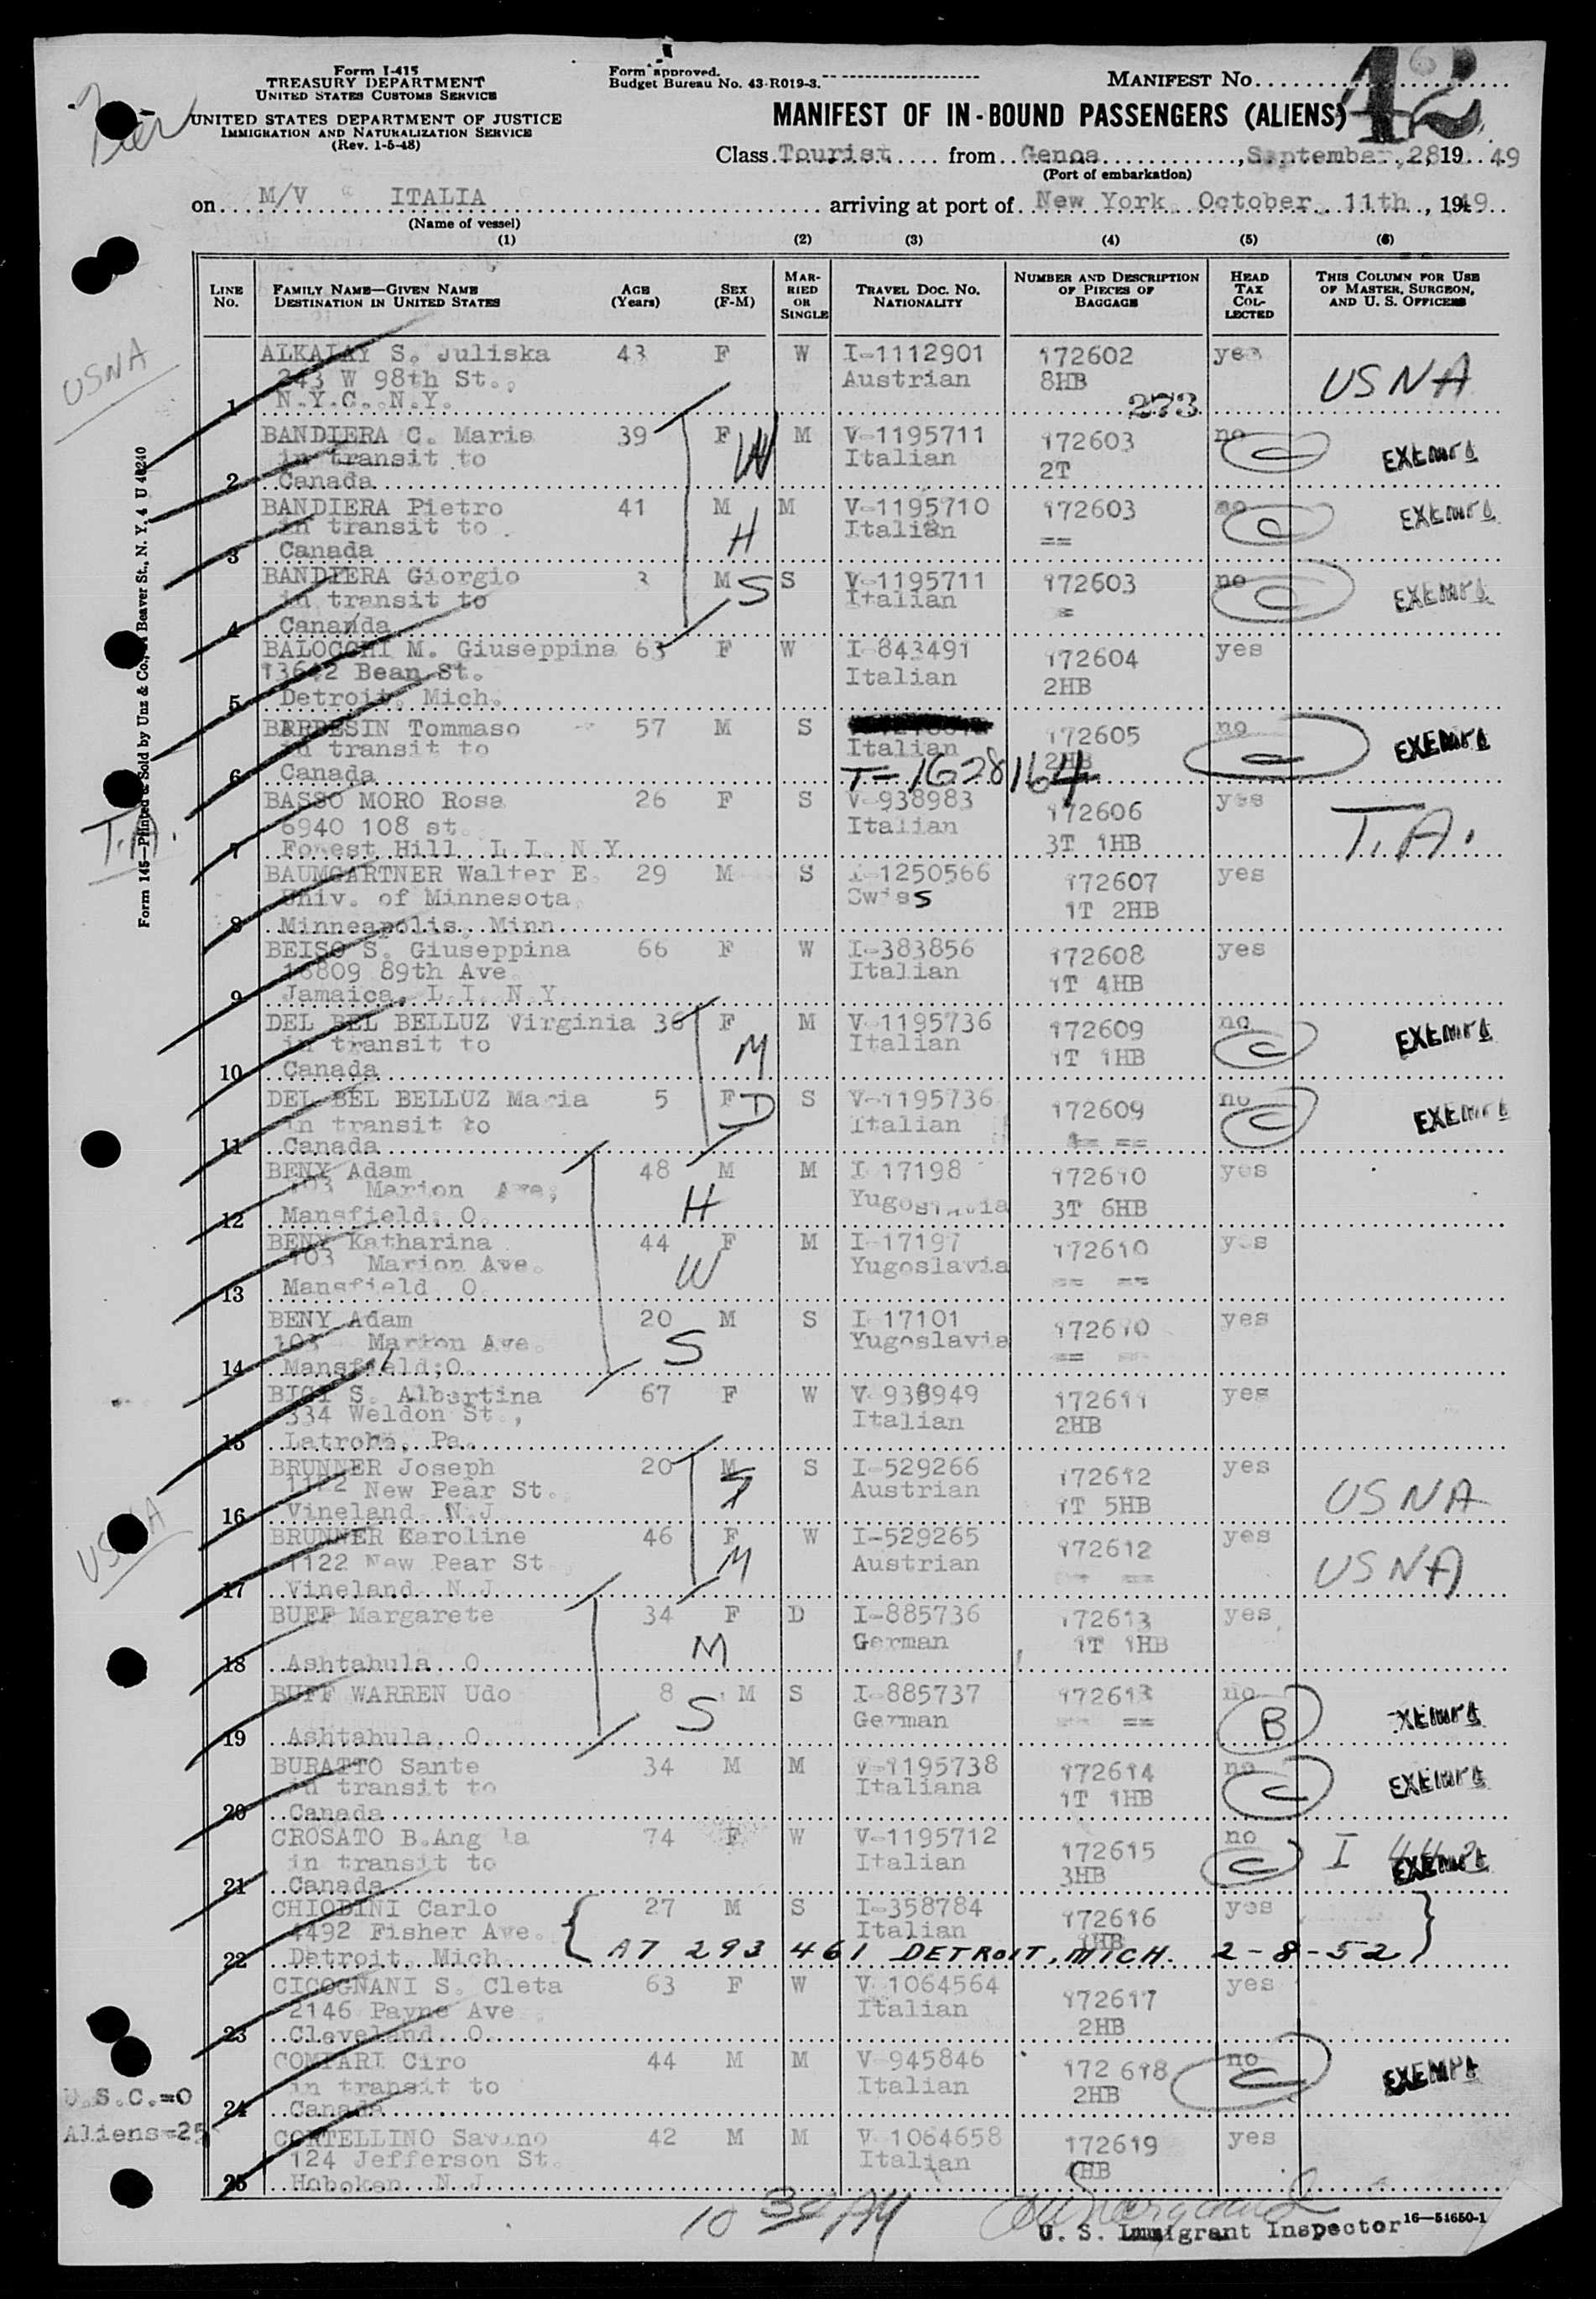 Form I-415
TREASURY DEPARTMENT
UNITED STATES CUSTOMS SERVICE
UNITED STATES DEPARTMENT OF JUSTICE
IMMIGRATION AND NATURALIZATION SERVICE
(Rev. 1-5-48)
Form approved.
Budget Bureau No. 43-R019-3.
MANIFEST No. 42
MANIFEST OF IN-BOUND PASSENGERS (ALIENS)
Class Tourist from Genoa, September, 28, 19 49
(Port of embarkation)
on M/V ITALIA arriving at port of New York October 11th, 1949
(Name of vessel)
(1) (2) (3) (4) (5) (6)
LINE No. FAMILY NAME—GIVEN NAME DESTINATION IN UNITED STATES AGE (Years) SEX (F-M) MARRIED OR SINGLE TRAVEL DOC. NO. NATIONALITY NUMBER AND DESCRIPTION OF PIECES OF BAGGAGE HEAD TAX COLLECTED THIS COLUMN FOR USE OF MASTER, SURGEON, AND U. S. OFFICERS
USNA
ALKALAY S. Juliska 43 F W I-1112901 172602 yes
243 W 98th St., Austrian 8HB USNA
1 N.Y.C. N.Y. 273
BANDIERA C. Maria 39 F W M V-1195711 172603 no
in transit to Italian 2T EXEMPT
2 Canada
BANDIERA Pietro 41 M M V-1195710 172603 no EXEMPT
in transit to H Italian ==
3 Canada
BANDIERA Giorgio 3 M S S V-1195711 172603 no
in transit to Italian = EXEMPT
4 Cananda
BALOCCHI M. Giuseppina 63 F W I-843491 172604 yes
13642 Bean St. Italian 2HB
5 Detroit, Mich.
BARBESIN Tommaso 57 M S 172605 no
in transit to Italian 2HB EXEMPT
6 Canada T-1628164
BASSO MORO Rosa 26 F S V-938983 172606 yes
6940 108 st. Italian 3T 1HB T.A.
7 Forest Hill L.I. N.Y.
T.A.
BAUMGARTNER Walter E. 29 M S I-1250566 172607 yes
Univ. of Minnesota Swiss 1T 2HB
8 Minneapolis, Minn.
BEISO S. Giuseppina 66 F W I-383856 172608 yes
18809 89th Ave. Italian 1T 4HB
9 Jamaica, L.I. N.Y.
DEL BEL BELLUZ Virginia 36 F M V-1195736 172609 no
in transit to M Italian 1T 1HB EXEMPT
10 Canada
DEL BEL BELLUZ Maria 5 F D S V-1195736 172609 no
in transit to Italian == == EXEMPT
11 Canada
BENY Adam 48 M M I-17198 172610 yes
103 Marion Ave, H Yugoslavia 3T 6HB
12 Mansfield, O.
BENY Katharina 44 F M I-17197 172610 yes
103 Marion Ave. W Yugoslavia == ==
13 Mansfield O.
BENY Adam 20 M S I-17101 172610 yes
103 Marion Ave. S Yugoslavia ==
14 Mansfield;O.
BIGI S. Albertina 67 F W V-938949 172611 yes
334 Weldon St., Italian 2HB
15 Latrobe, Pa.
BRUNNER Joseph 20 M S I-529266 172612 yes
1122 New Pear St. Austrian 1T 5HB USNA
16 Vineland N.J.
BRUNNER Karoline 46 F W I-529265 172612 yes
1122 New Pear St M Austrian == USNA
17 Vineland N.J.
USNA
BUFF Margarete 34 F D I-885736 172613 yes
M German 1T 1HB
18 Ashtabula O
BUFF WARREN Udo 8 M S I-885737 172613 no
S German == B EXEMPT
19 Ashtabula, O.
BURATTO Sante 34 M M V-1195738 172614 no
in transit to Italiana 1T 1HB EXEMPT
20 Canada
CROSATO B.Ang la 74 F W V-1195712 172615 no
in transit to Italian 3HB EXEMPT
21 Canada
CHIODINI Carlo 27 M S I-358784 172616 yes
4492 Fisher Ave. Italian 1HB
22 Detroit, Mich. A7 293 461 DETROIT, MICH. 2-8-52
CICOGNANI S. Cleta 63 F W V 1064564 172617 yes
2146 Payne Ave Italian 2HB
23 Cleveland O.
COMPARI Ciro 44 M M V-945846 172 618 no
in transit to Italian 2HB EXEMPT
24 Canada
CORTELLINO Savino 42 M M V 1064658 172619 yes
124 Jefferson St. Italian 4HB
25 Hoboken N J
U.S.C.=0
Aliens=25
10 30 AM
U. S. Immigrant Inspector 16—54650-1
Form 145—Printed & Sold by Unz & Co., Beaver St., N. Y. 4 U 40240